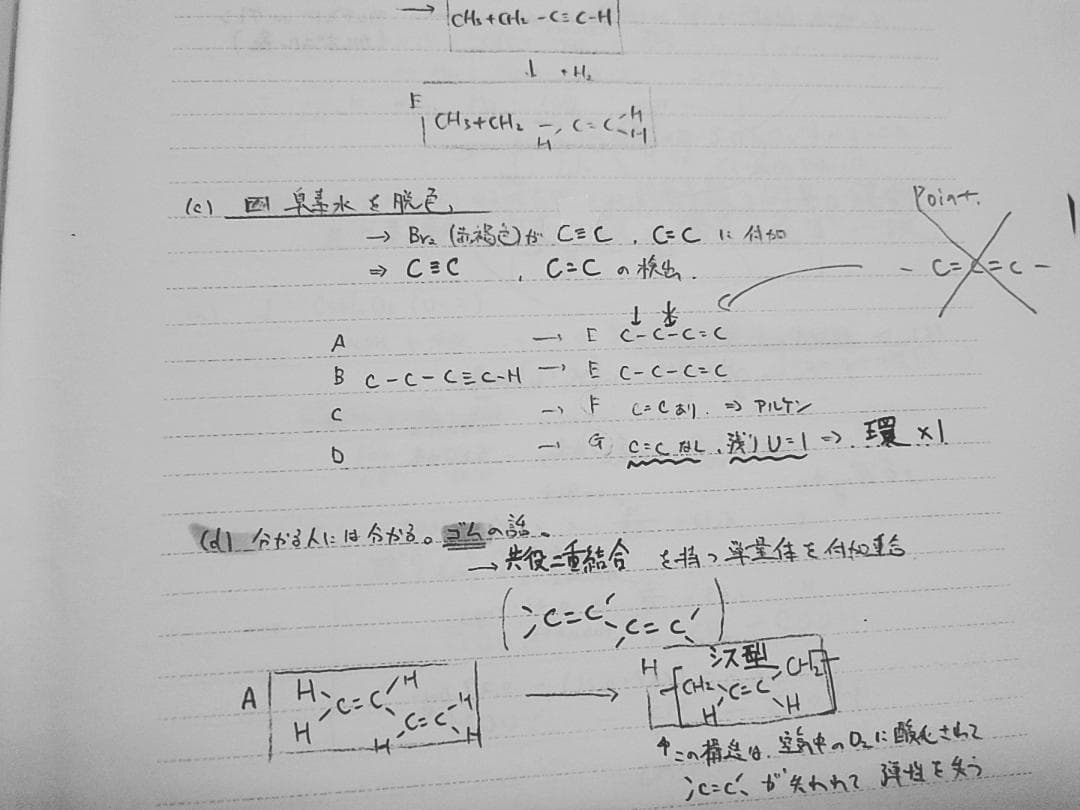 → CH₃+CH₂-C≡C-H
↓ +H₂
E CH₃+CH₂ - C=C H H H
(c) 臭素水を脱色,
→ Br₂ (赤褐色)が C≡C , C=C に付加
⇒ C≡C , C=C の検出.
Point.
- C=C=C -
A → E C-C-C=C
B C-C-C≡C-H → E C-C-C=C
C → F C=Cあり. ⇒ アルケン
D → G C=Cなし, 残りU=1 ⇒ 環×1
(d) 分かる人には分かる。ゴムの話。
→ 共役二重結合 を持つ単量体を付加重合
( C=C C=C )
A H H C=C H H C=C H H
→ H シス型 CH₂ C=C CH₂ H H
↑この構造は、空気中のO₂に酸化されて
C=C が失われて 弾性を失う